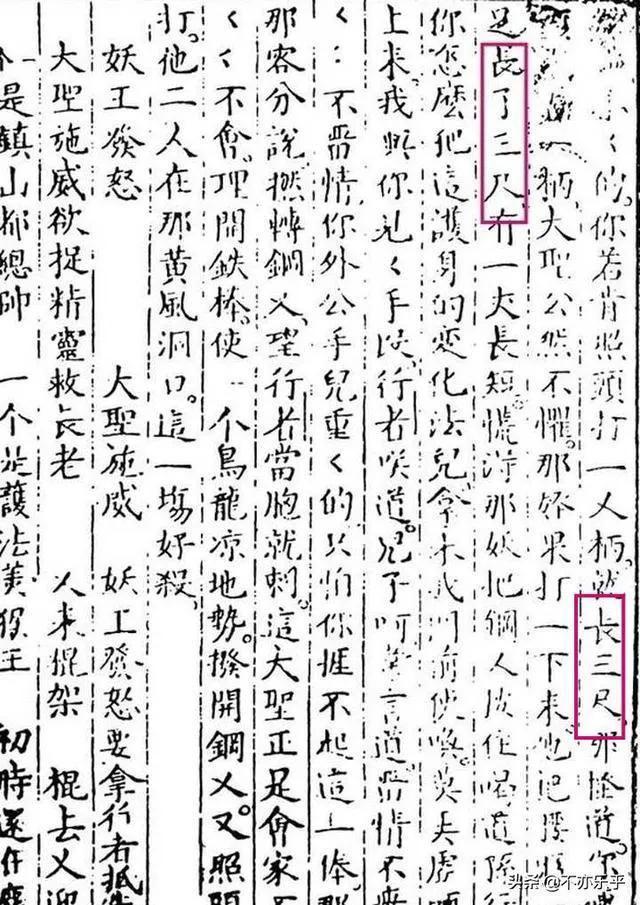 小〻的你若肯照頭打一叉柄就長三尺那怪道你
柄大聖公然不懼那妖果打一下來他把腰
足長了三尺有一丈長短慌得那妖把鋼叉按住喝道孫行
你怎麼把這護身的變化法兒拿來我門前使喚莫
上來我與你見〻手段行者笑道兒子呵言道留情不
〻不留情你外公手兒重〻的只怕你捱不起這一棒那
那容分說撚轉鋼叉望行者當胸就刺這大聖正是會家不
〻〻不會理開鉄棒使一个烏龍凉地勢撥開鋼叉又照頭
打他二人在那黄風洞口這一塲好殺
妖王發怒 大聖施威 妖王發怒要拿行者抵
大聖施威欲捉精靈救長老 叉來棍架 棍去叉迎
个是鎮山都總帥 一个是護法美猴王 初時還在塵
头条 @不亦乐乎